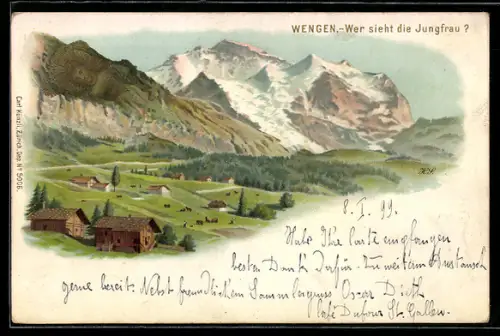 WENGEN.-Wer sieht die Jungfrau?
Carl Künzli, Zürich, Dep. Nº 5006.
H.S.
8. I. 99.
Habe Ihre Karte empfangen
besten Dank dafür. Zu weiterm Austausch
gerne bereit. Nebst freundlichem Sammlergruss Oscar
Café Dufour St. Gallen.